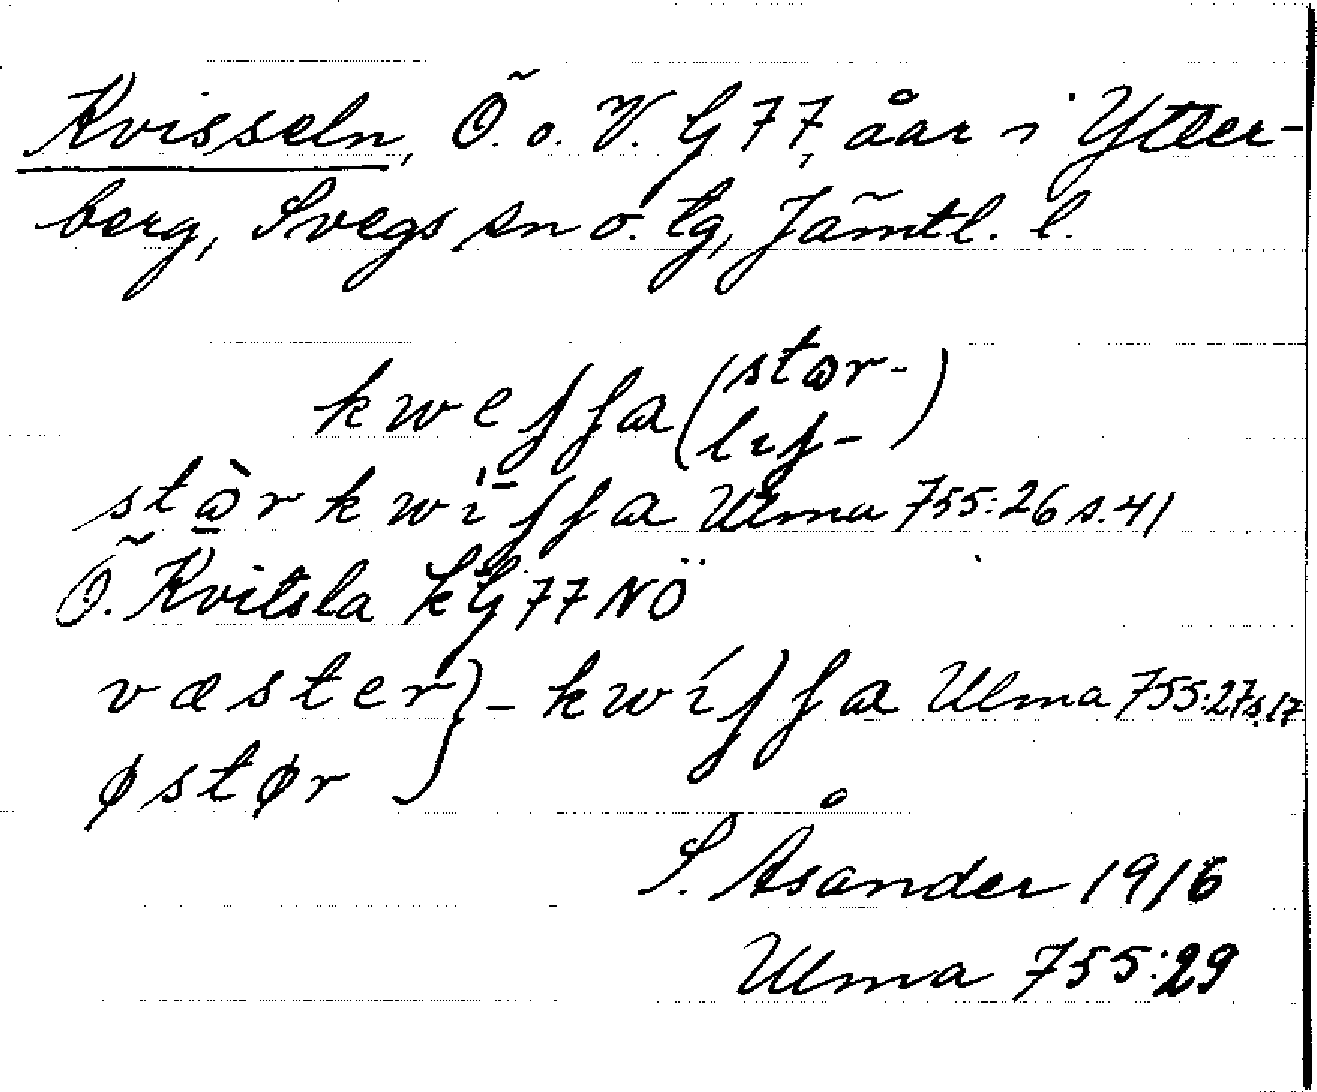 Kvisseln, Ö. o. V. G 77, åar i Ytter-
berg, Svegs sn o. tg, Jämtl. l.
kweʃʃa (stor-
lıʃ-)
stòrkwiʃʃa Ulma 755:26 s. 41
Ö. Kvitsla kG 77 NÖ
væster}-kwiʃʃa Ulma 755:27 s. 17
østør
S. Åsander 1916
Ulma 755:29